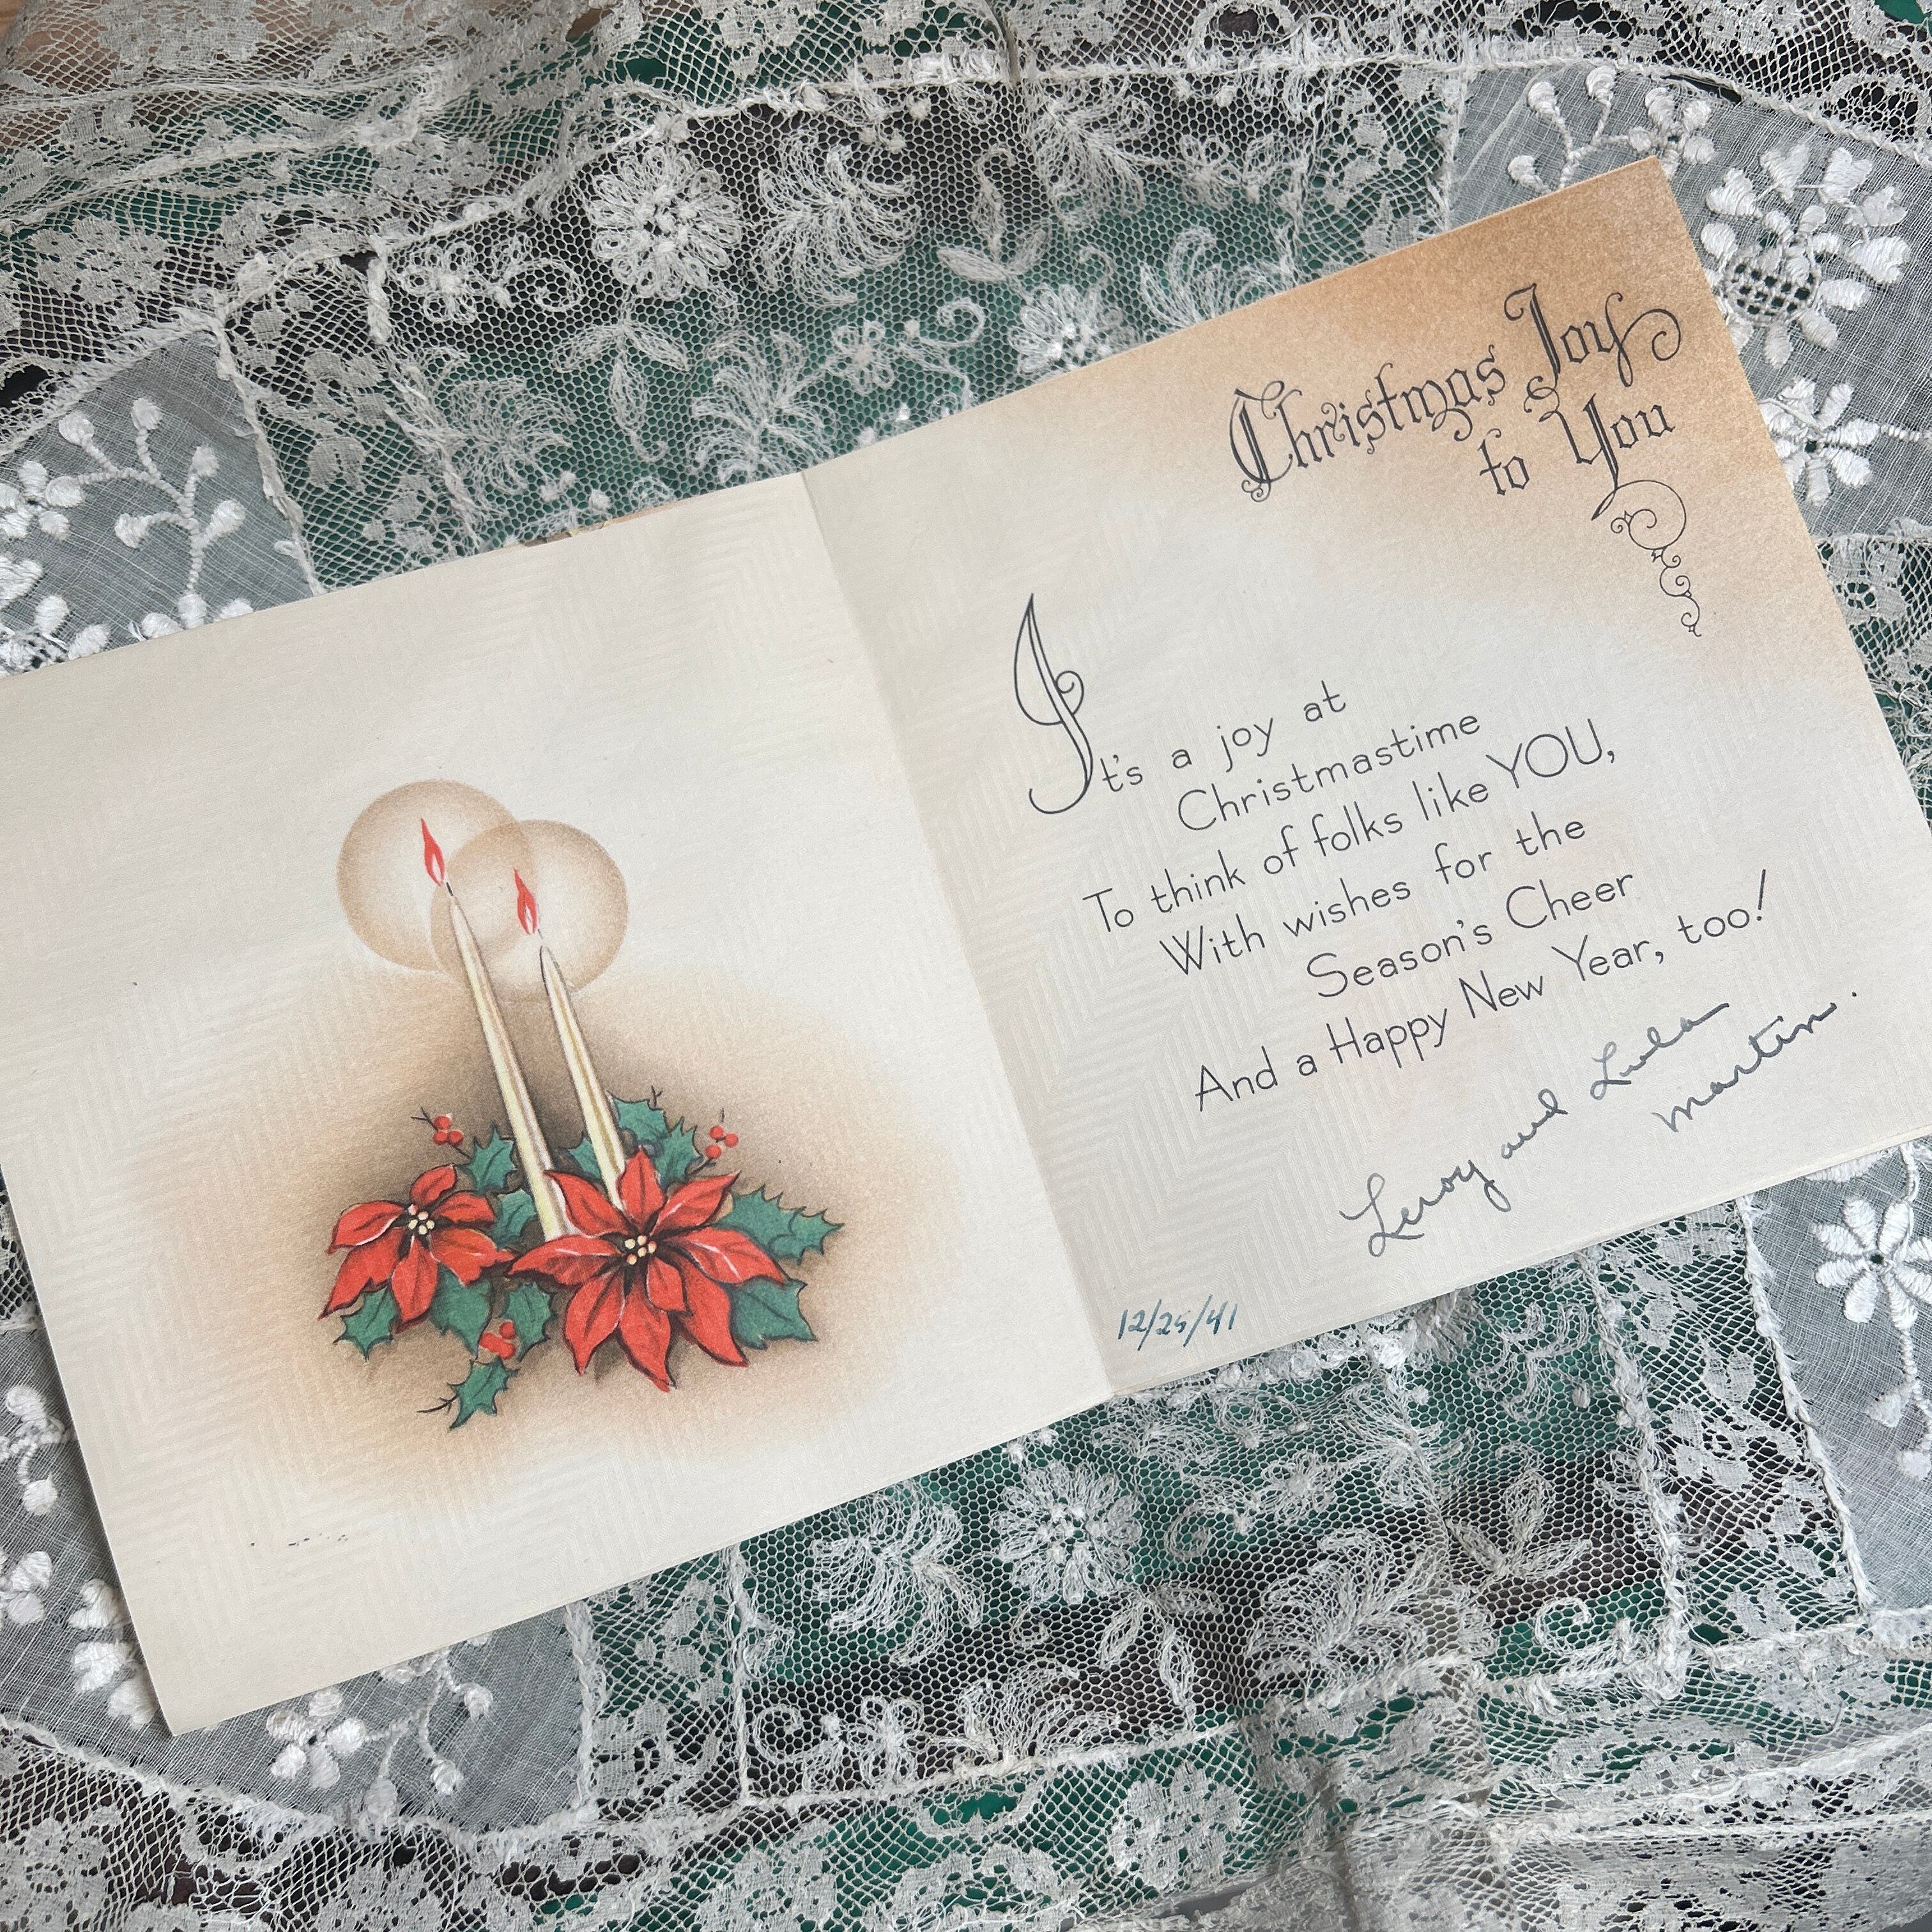 Christmas Joy
to You
It's a joy at
Christmastime
To think of folks like YOU,
With wishes for the
Season's Cheer
And a Happy New Year, too!
Leroy and Lula
Martin.
12/25/41